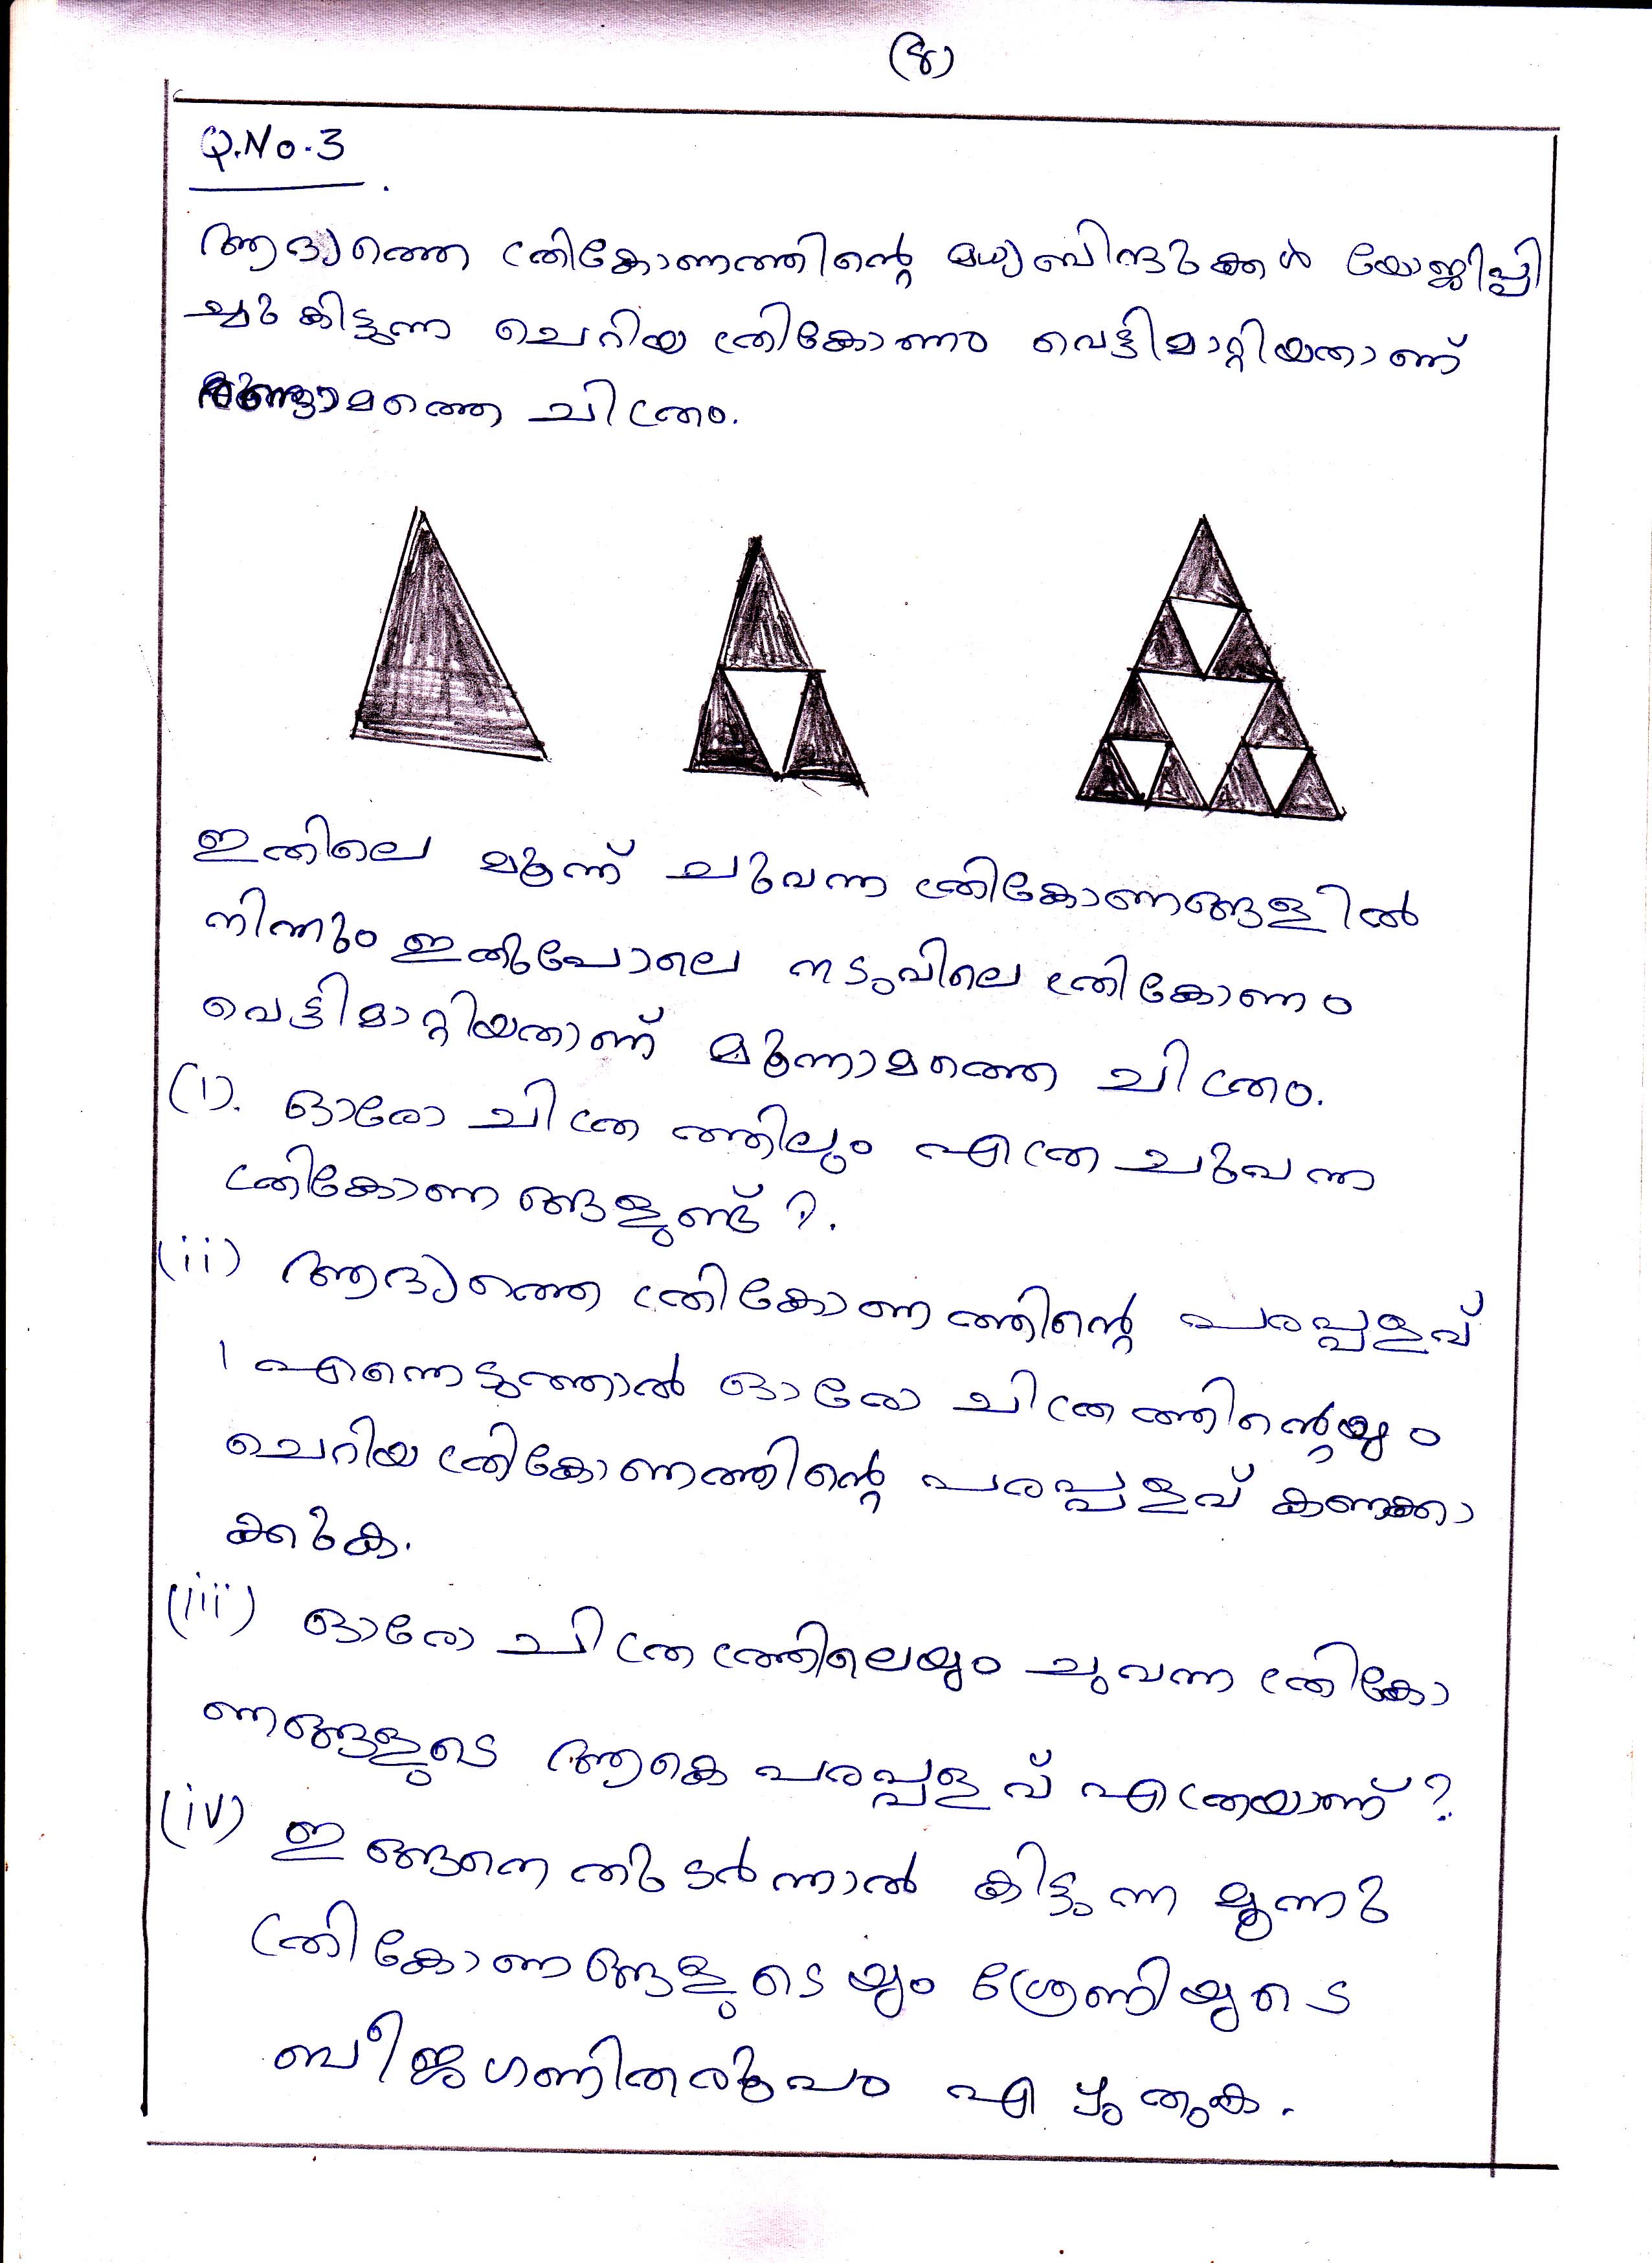 (8)
Q.No.3
ആദ്യത്തെ ത്രികോണത്തിന്റെ മധ്യബിന്ദുക്കൾ യോജിപ്പി
ച്ചു കിട്ടുന്ന ചെറിയ ത്രികോണം വെട്ടിമാറ്റിയതാണ്
രണ്ടാമത്തെ ചിത്രം.
ഇതിലെ മൂന്ന് ചുവന്ന ത്രികോണങ്ങളിൽ
നിന്നും ഇതുപോലെ നടുവിലെ ത്രികോണം
വെട്ടിമാറ്റിയതാണ് മൂന്നാമത്തെ ചിത്രം.
(i). ഓരോ ചിത്രത്തിലും എത്ര ചുവന്ന
ത്രികോണങ്ങളുണ്ട് ?.
(ii) ആദ്യത്തെ ത്രികോണത്തിന്റെ പരപ്പളവ്
1 എന്നെടുത്താൽ ഓരോ ചിത്രത്തിന്റെയും
ചെറിയ ത്രികോണത്തിന്റെ പരപ്പളവ് കണക്കാ
ക്കുക.
(iii) ഓരോ ചിത്രത്തിലെയും ചുവന്ന ത്രികോ
ണങ്ങളുടെ ആകെ പരപ്പളവ് എത്രയാണ് ?
(iv) ഇങ്ങനെ തുടർന്നാൽ കിട്ടുന്ന മൂന്നു
ത്രികോണങ്ങളുടെയും ശ്രേണിയുടെ
ബീജഗണിതരൂപം എഴുതുക.